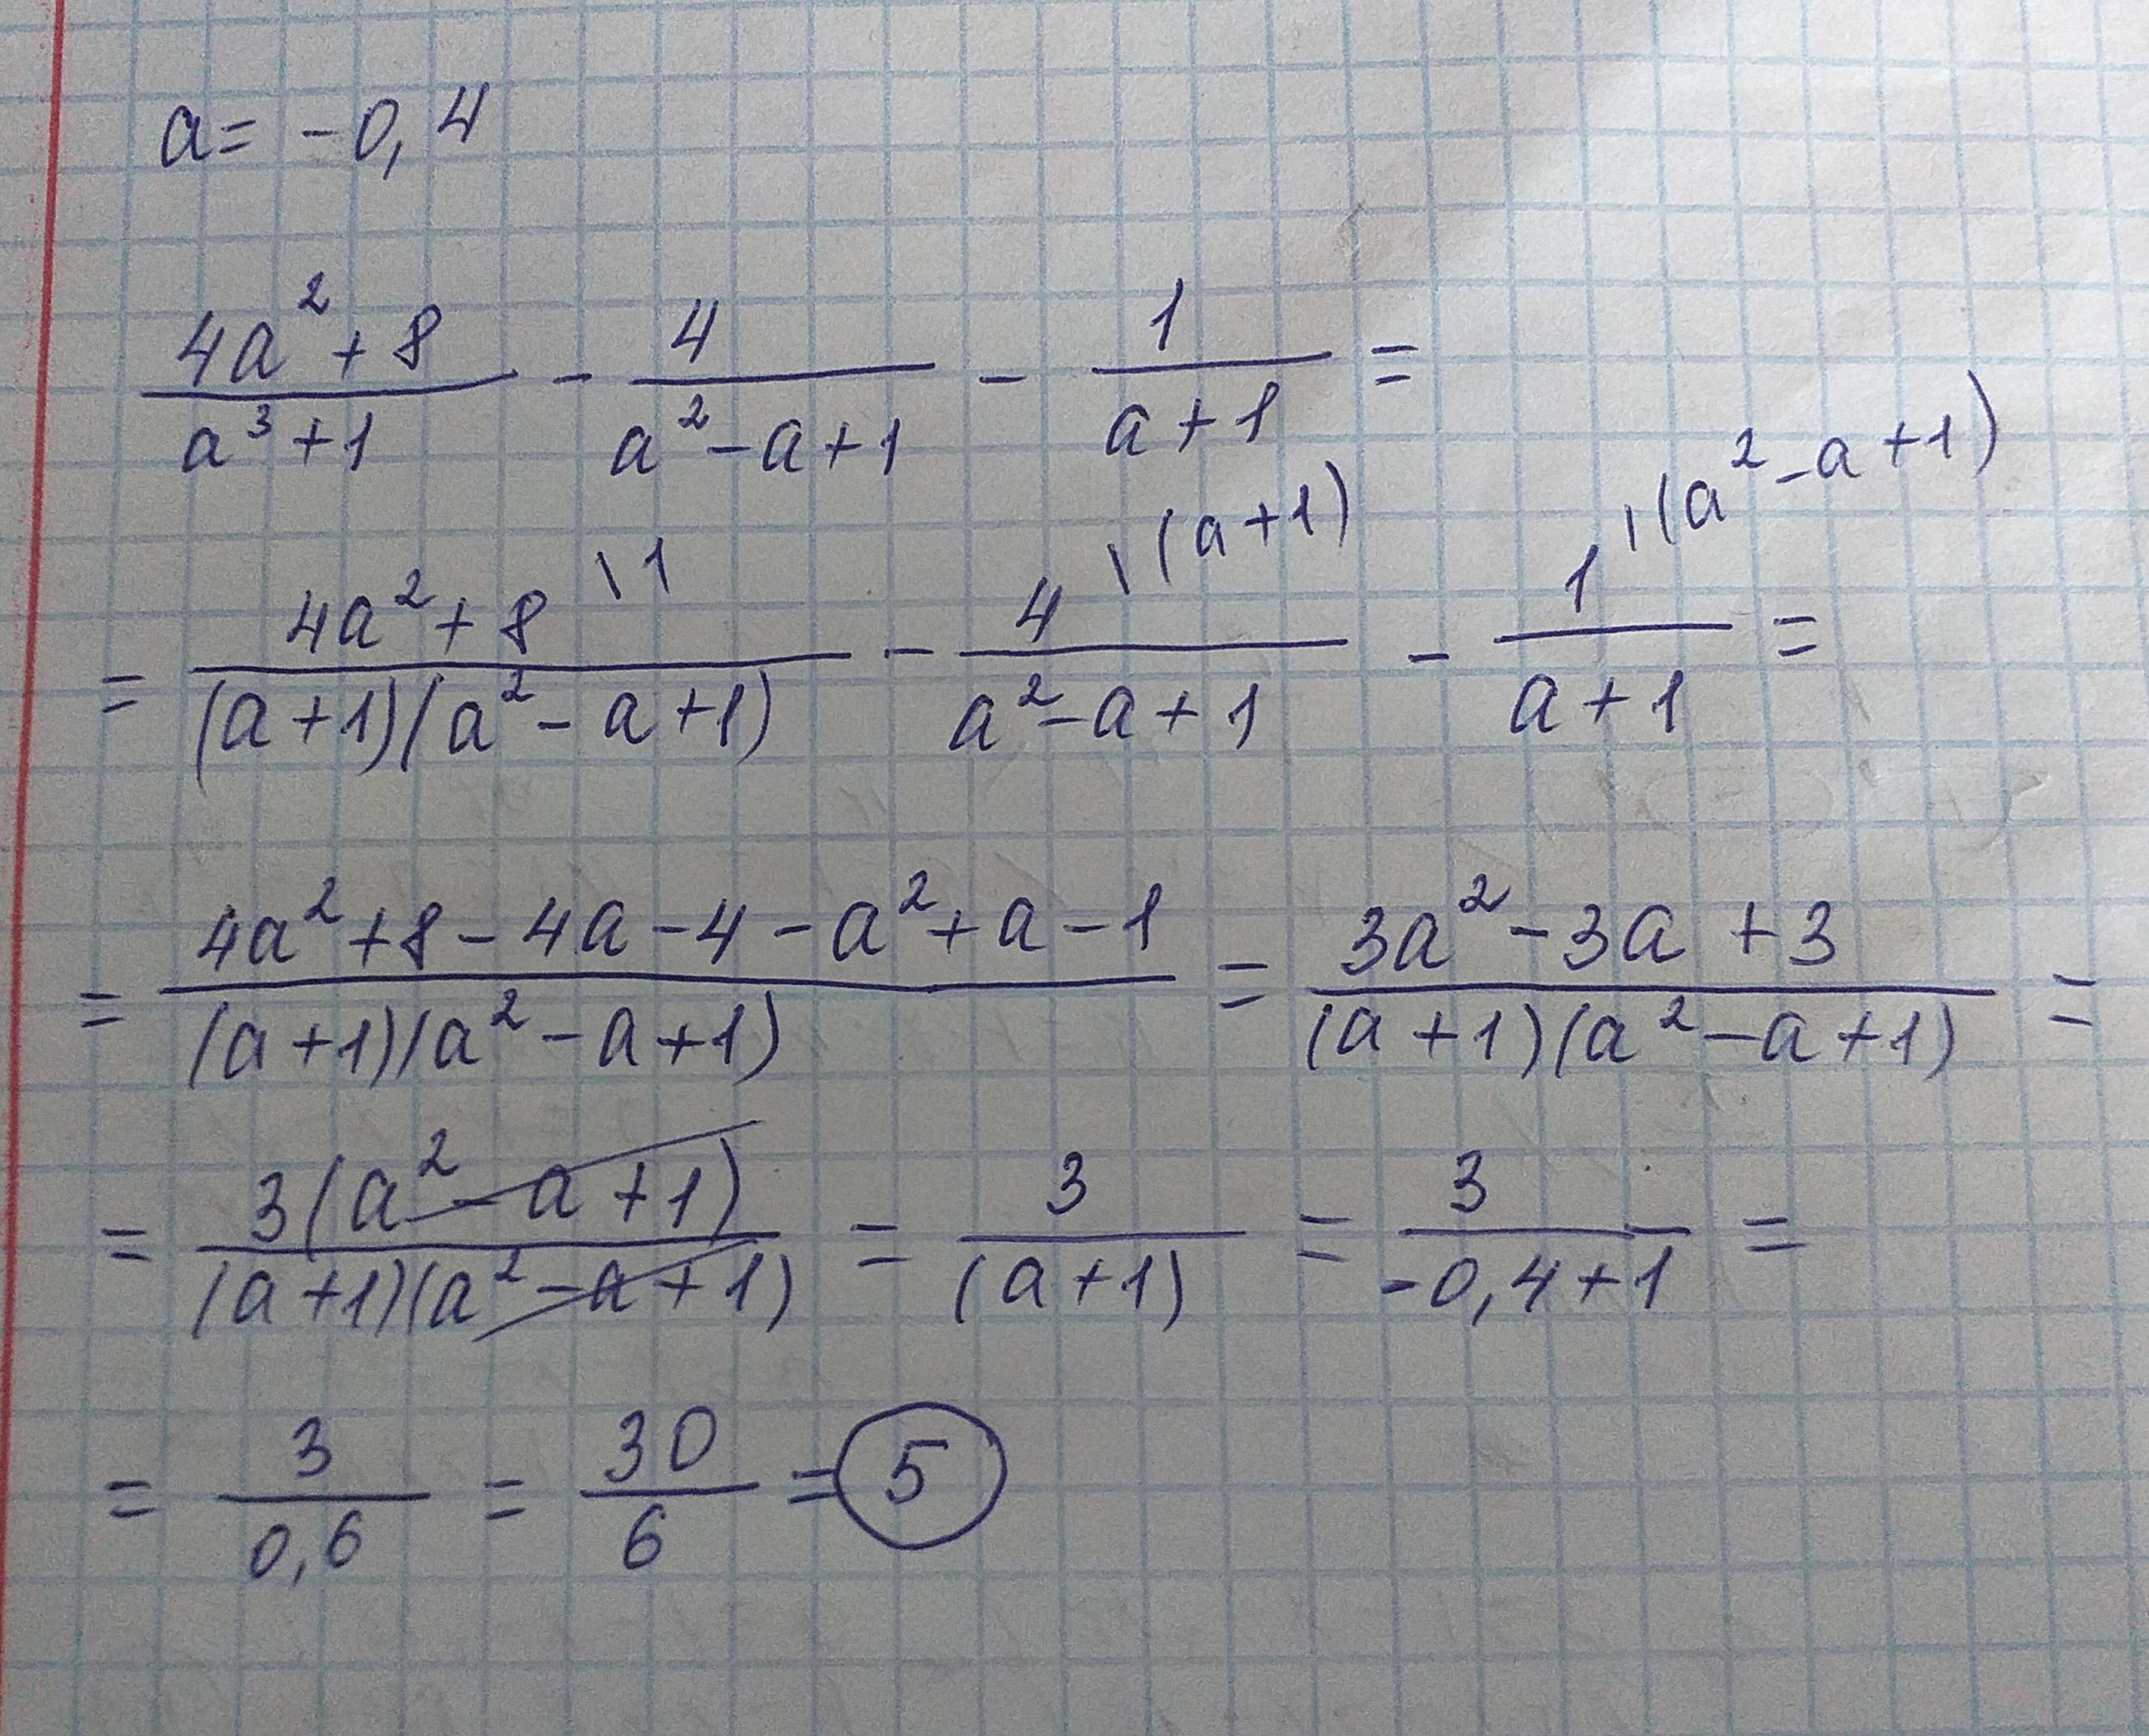 a = -0,4
(4a² + 8)/(a³ + 1) - 4/(a² - a + 1) - 1/(a + 1) =
= (4a² + 8)\1/((a + 1)(a² - a + 1)) - 4\(a + 1)/(a² - a + 1) - 1\(a² - a + 1)/(a + 1) =
= (4a² + 8 - 4a - 4 - a² + a - 1)/((a + 1)(a² - a + 1)) = (3a² - 3a + 3)/((a + 1)(a² - a + 1)) =
= 3(a² - a + 1)/((a + 1)(a² - a + 1)) = 3/(a + 1) = 3/(-0,4 + 1) =
= 3/0,6 = 30/6 = 5